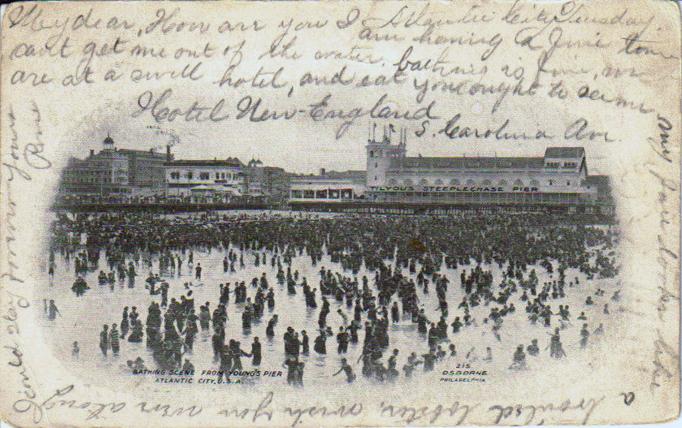 My dear, How are you I Atlantic City Tuesday.
am having a fine time
can't get me out of the water. bathing is fine, we
are at a swell hotel, and eat you ought to see me
Hotel New-England
S. Carolina Ave.
TILYOU'S STEEPLECHASE PIER
BATHING SCENE FROM YOUNG'S PIER
ATLANTIC CITY, U.S.A.
215
OSBORNE
PHILADELPHIA
My face looks like
a broiled lobster, wish you were along
yours